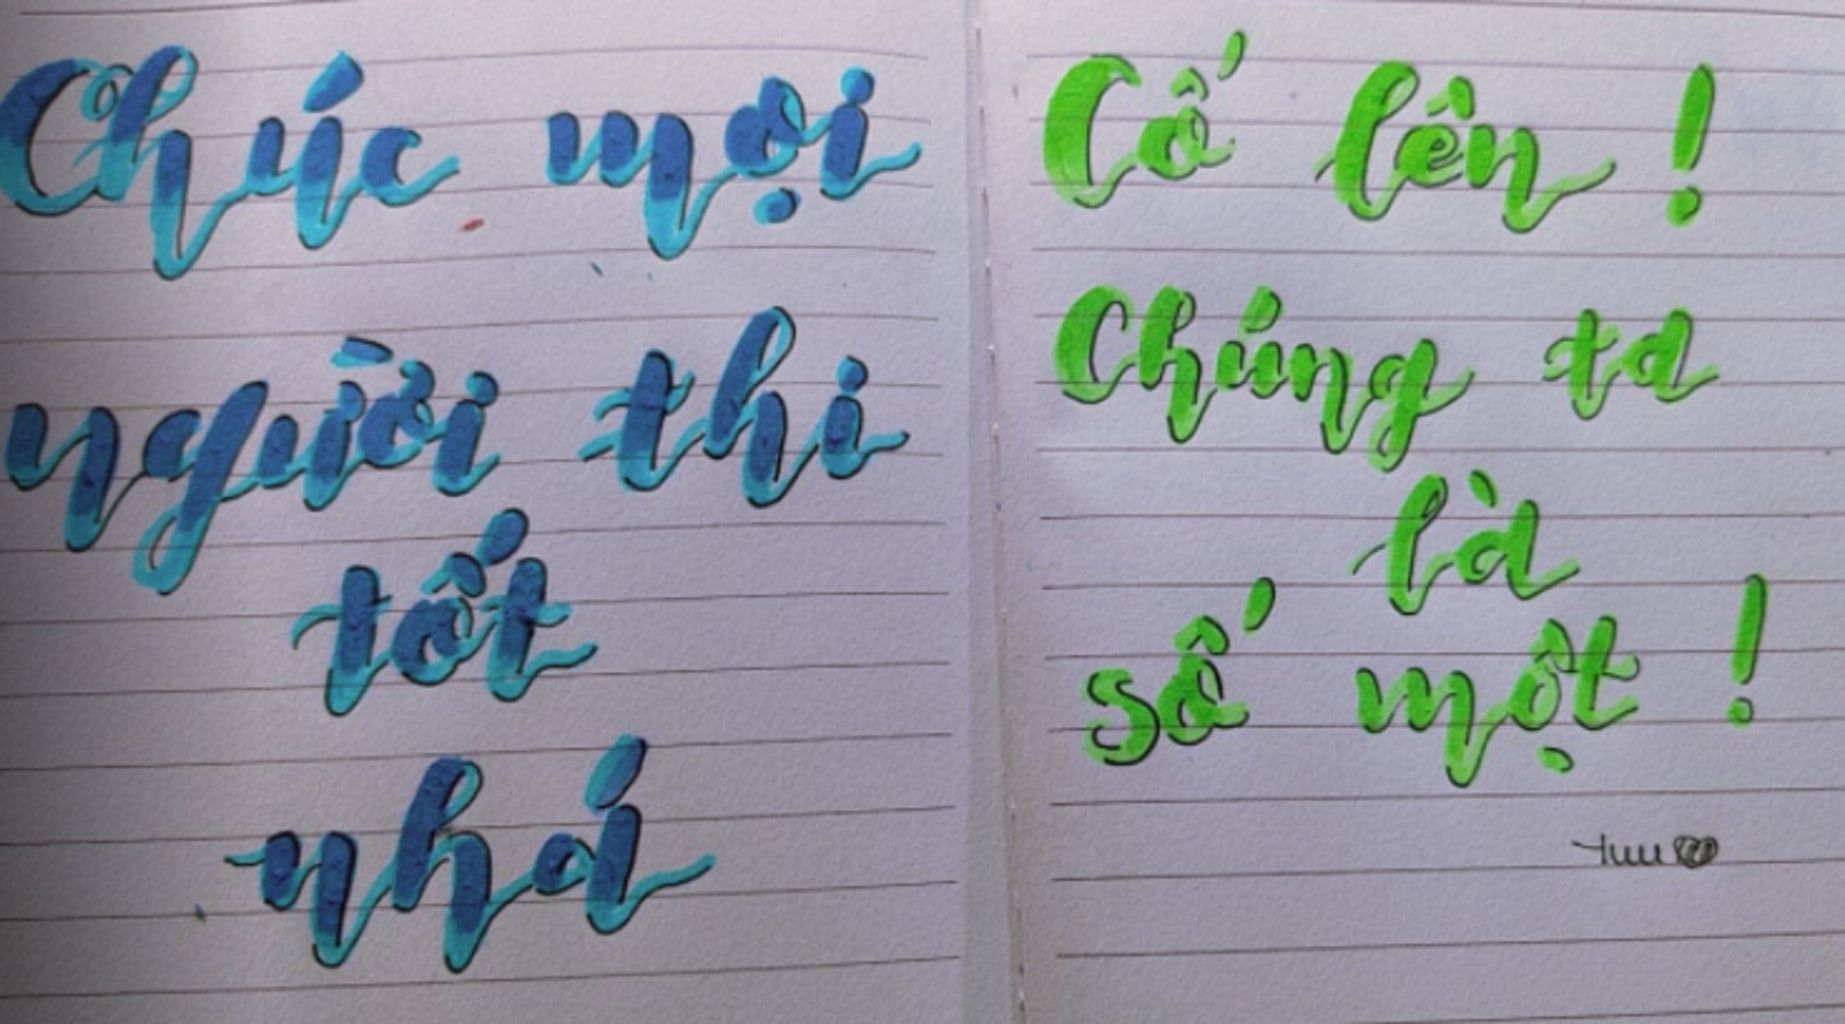 Chúc mọi
người thi
tốt
nhá
Cố lên !
Chúng ta
là
số một !